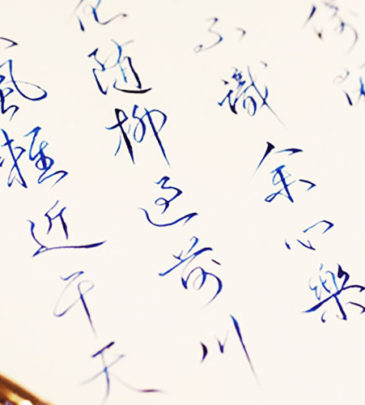 風輕近午天
花隨柳過前川
不識余心樂
偷